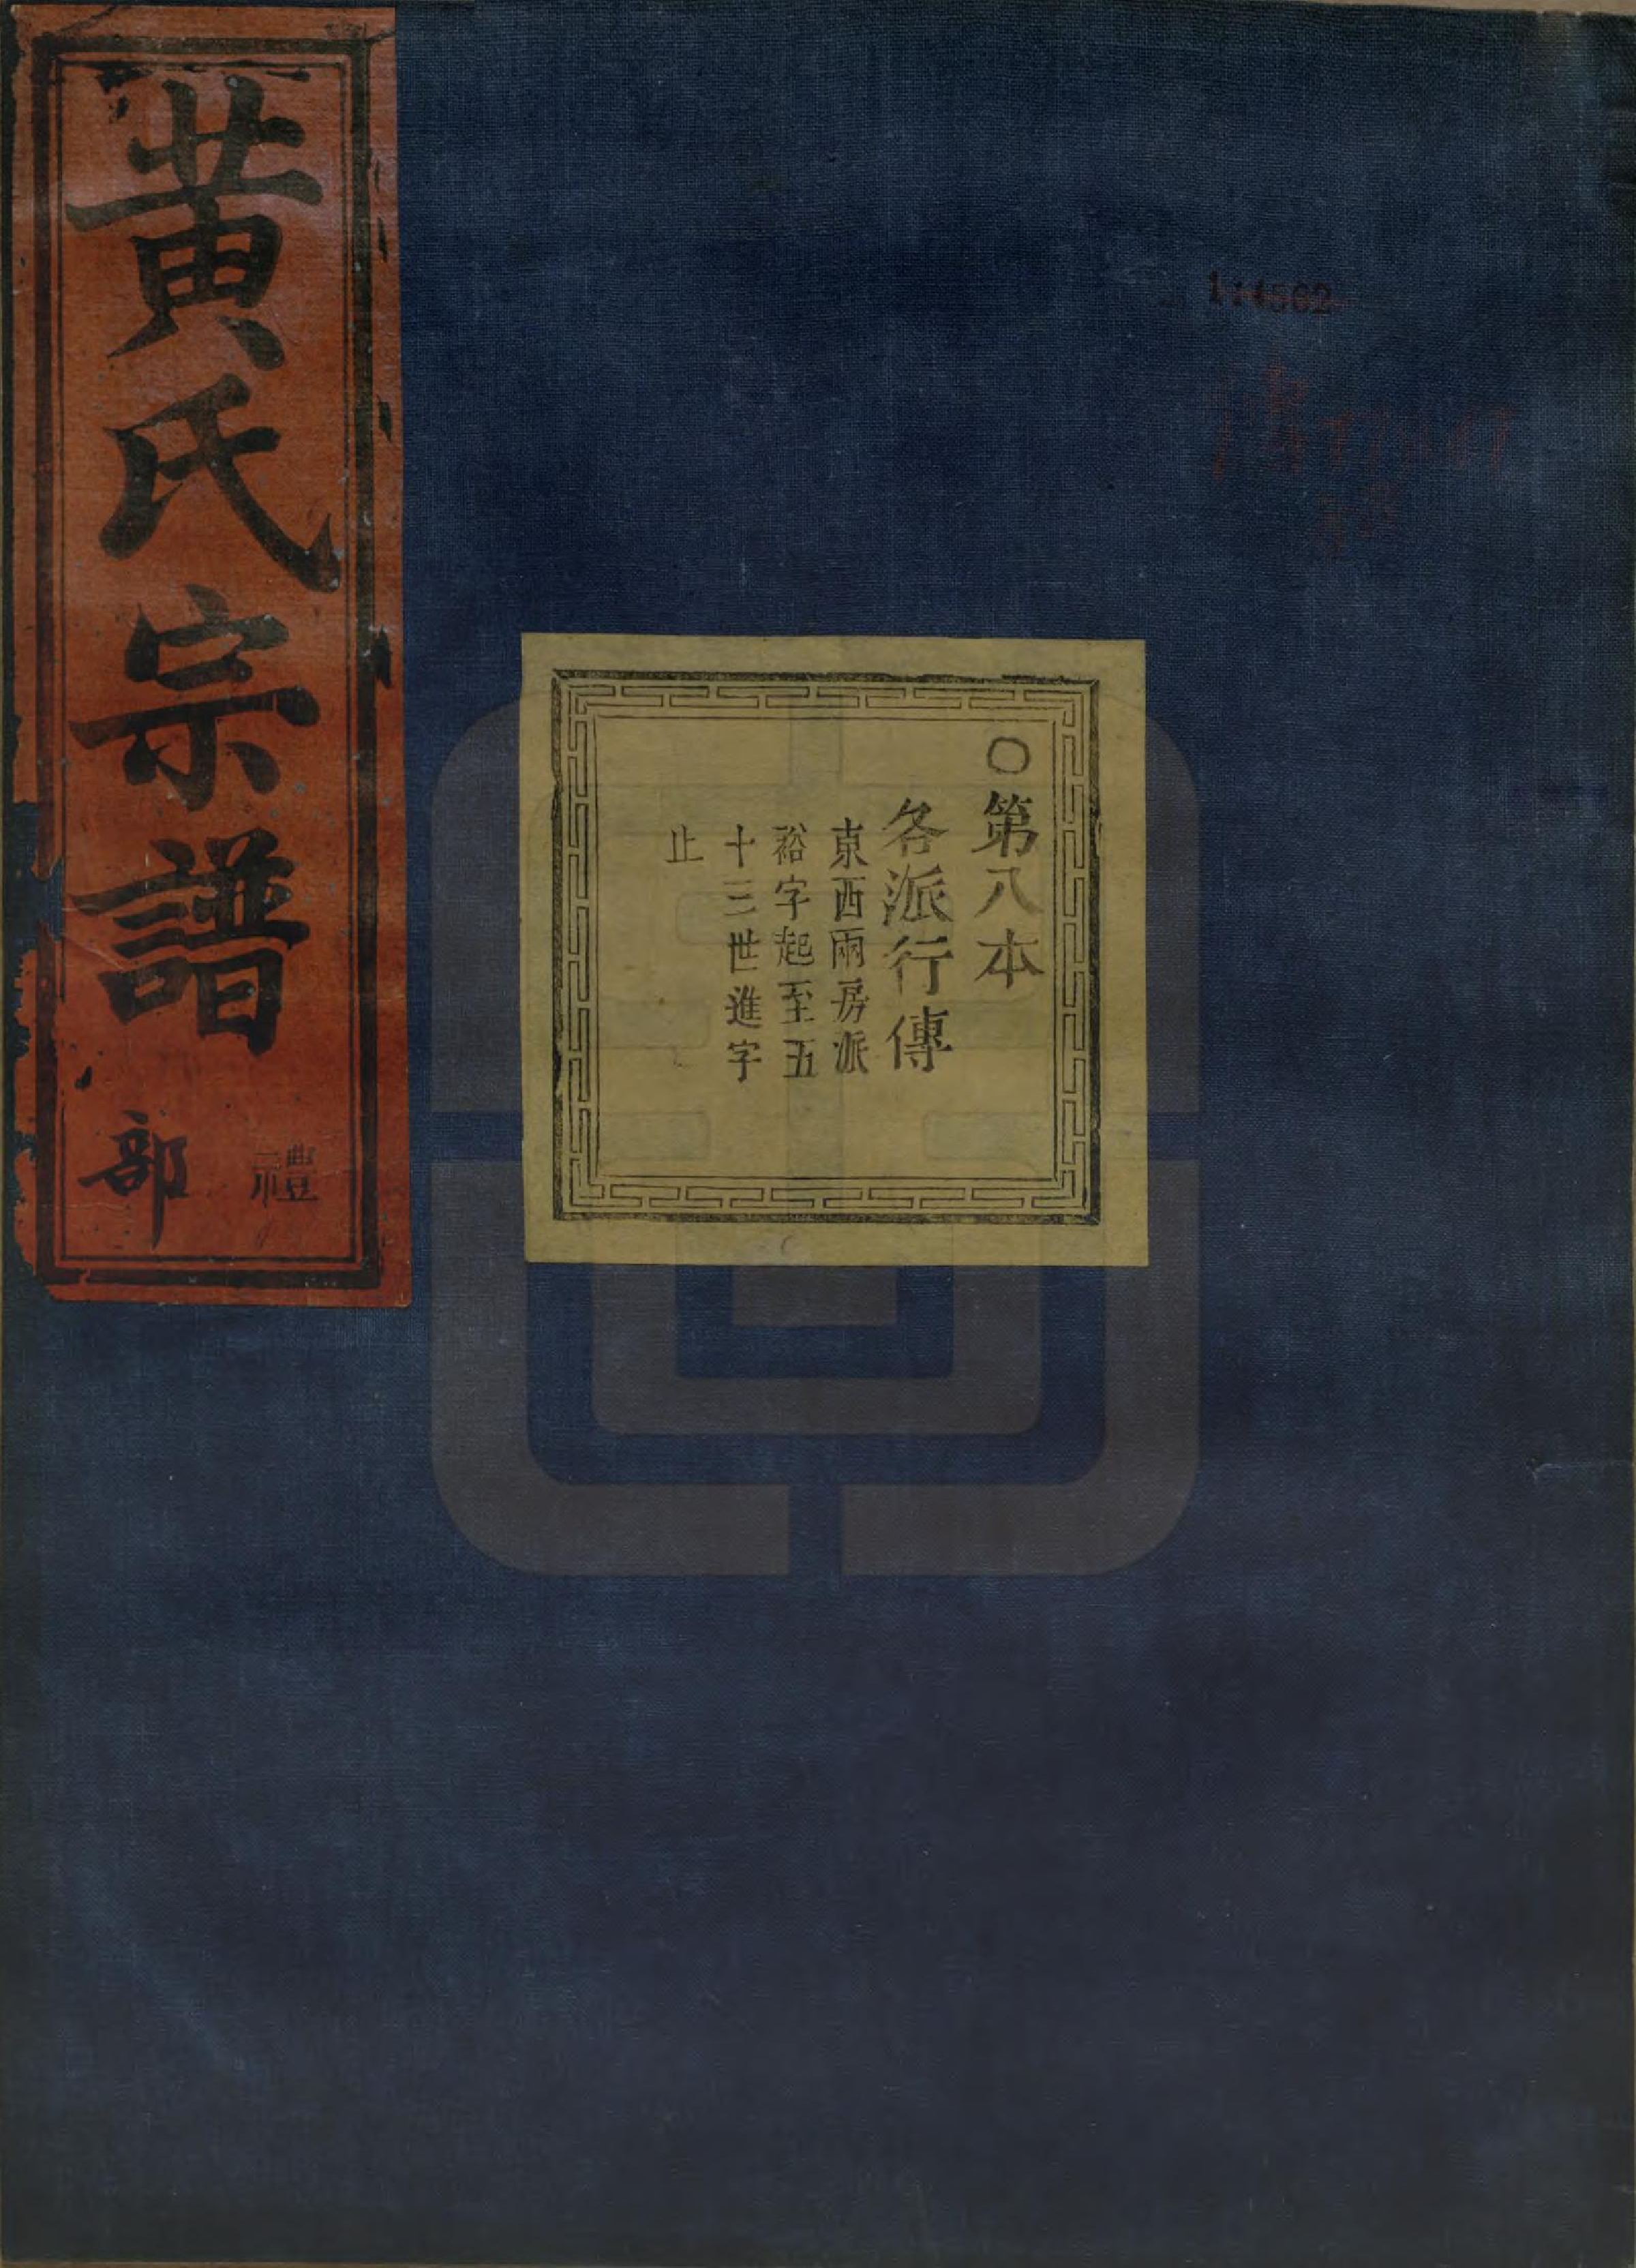 黄氏宗譜
禮部
〇第八本
各派行傳
東西兩房派
裕字起至五
十三世進字
止